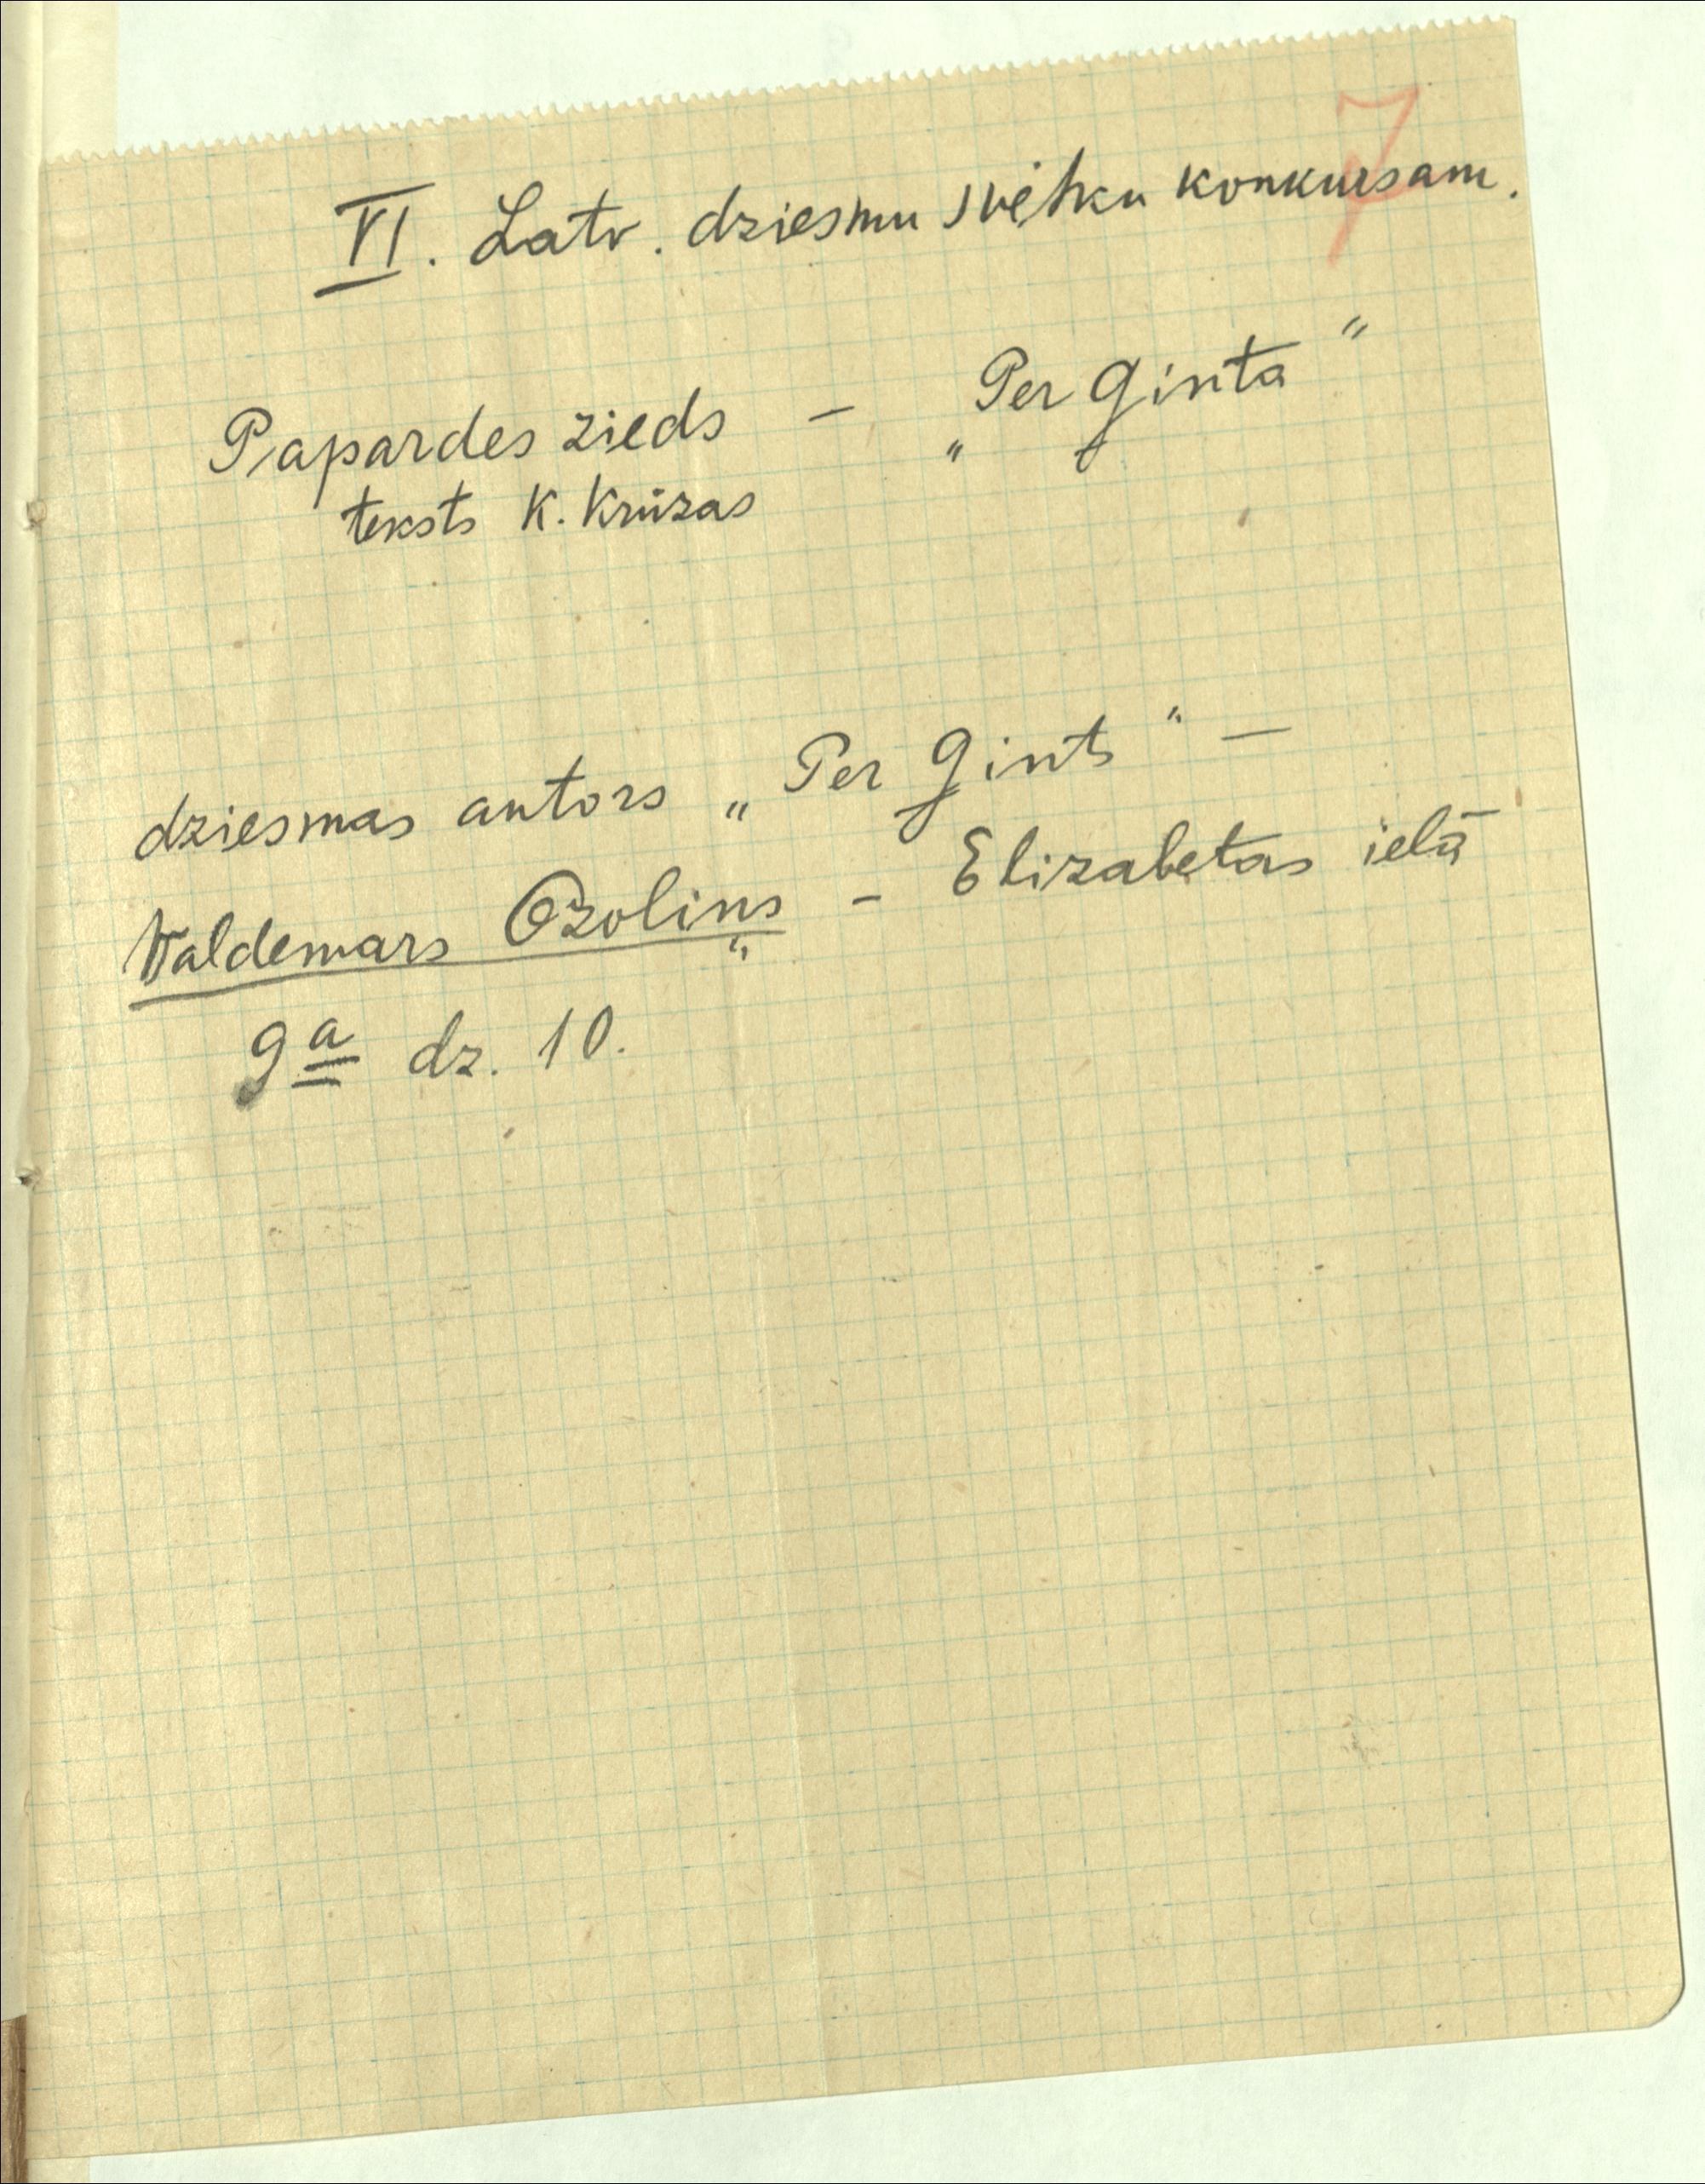 7
VI. Latv. dziesmu svētku konkursam.
Papardes zieds – „Per Ginta"
teksts K. Krūzas
dziesmas autors „Per Gints" –
Valdemars Ozoliņs – Elizabetas ielā
9a dz. 10.